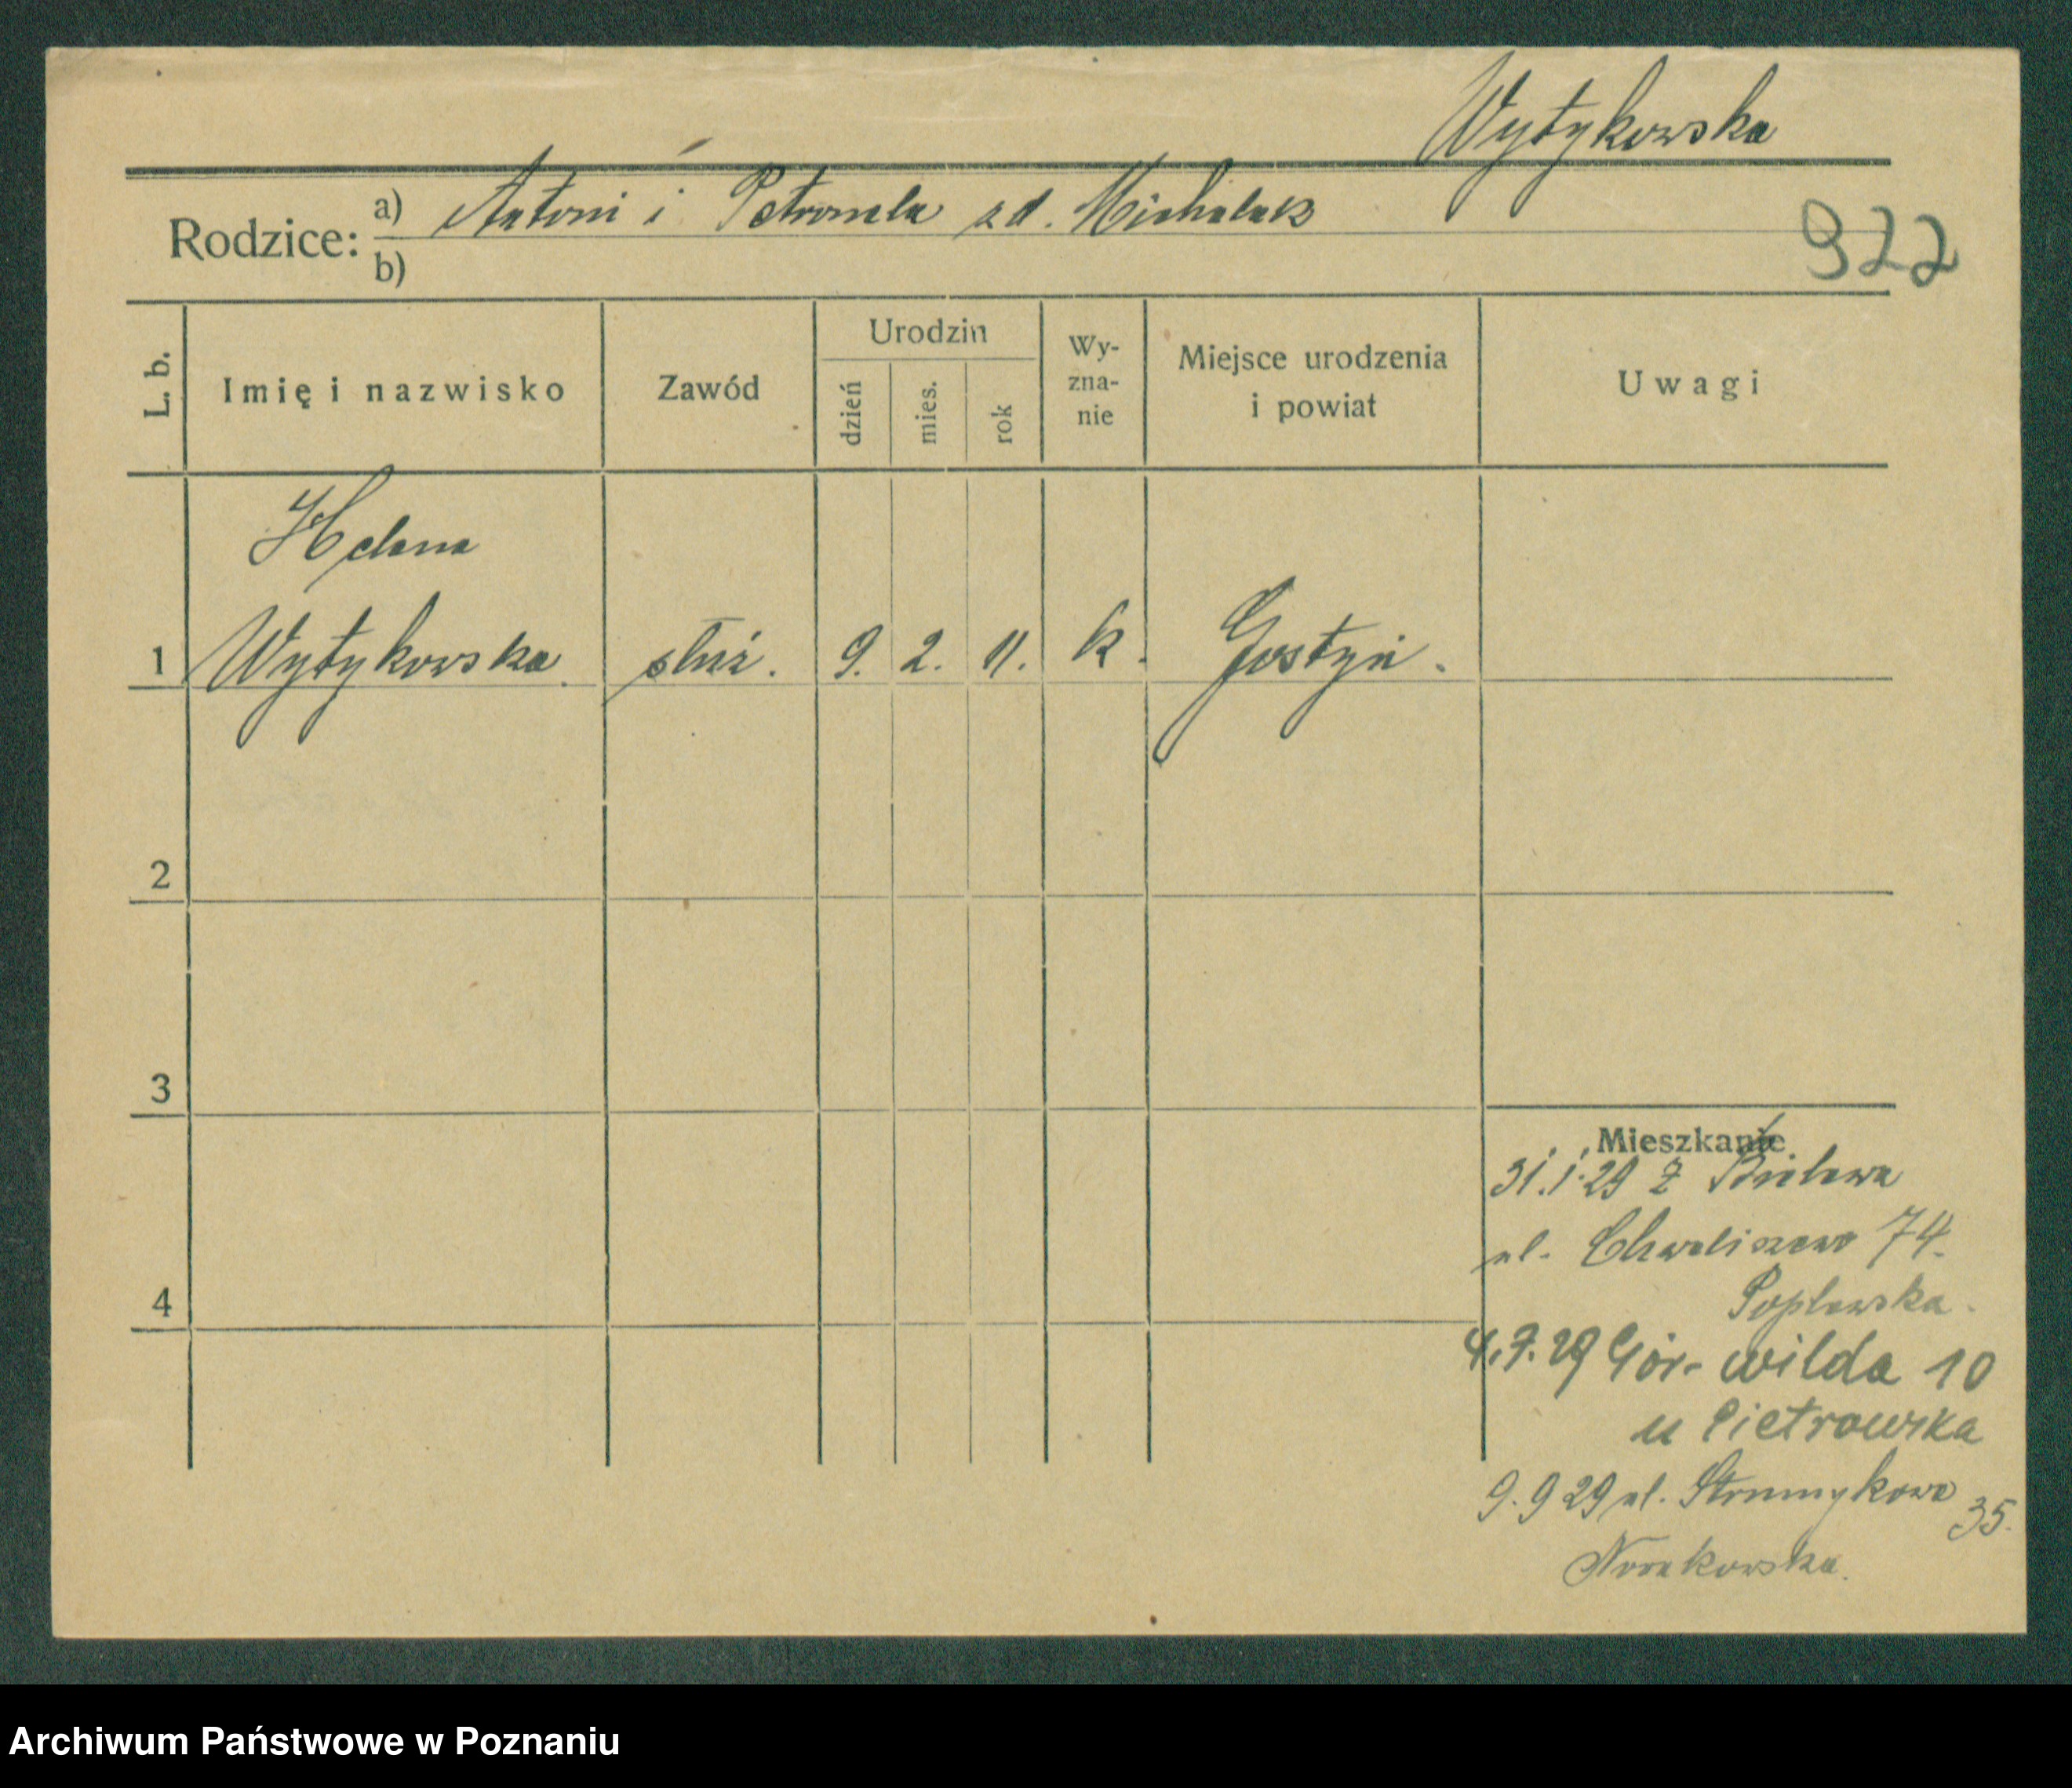 Wytykowska
Rodzice: a) Antoni i Petronela zd. Michalak
b)
922
L. b. Imię i nazwisko Zawód Urodzin dzień mies. rok Wy-zna-nie Miejsce urodzenia i powiat Uwagi
Helena
1 Wytykowska. służ. 9. 2. 11. k. Gostyń.
2
3
Mieszkanie
31.1.29 z
ul. Chwaliszewo 74.
4 Poplewska.
4.7.29 Gór- wilda 10
u Pietrowska
9.9 29 ul. Strumykowa 35.
Nowakowska.
Archiwum Państwowe w Poznaniu